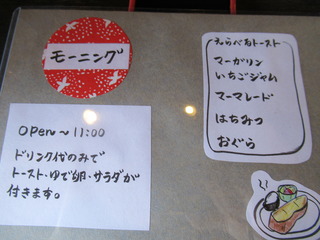 モーニング
OPEN〜11:00
ドリンク代のみで
トースト・ゆで卵・サラダが
付きます。
えらべるトースト
マーガリン
いちごジャム
マーマレード
はちみつ
おぐら